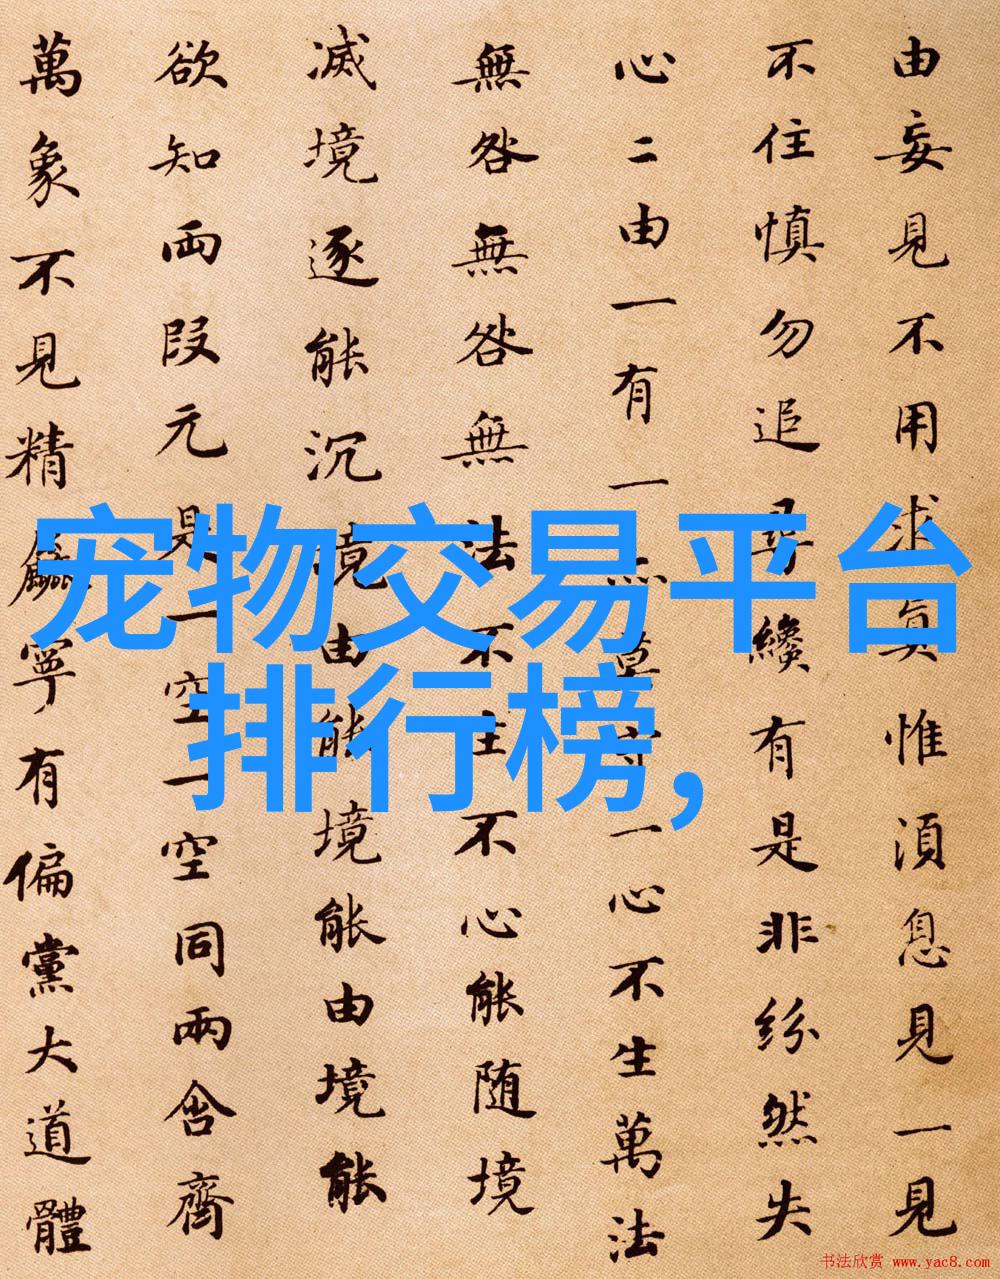 由妄見不用求真惟湏息見一見
不住慎勿追尋纔有是非紛然失
心二由一有一亦莫守一心不生萬法
無咎無咎無法不生不心能随境
滅境逐能沉境由能境能由境能
欲知兩段元是一空一空同兩含齊
萬象不見精麤寧有偏黨大道體
宠物交易平台
排行榜,
书法欣赏 www.yac8.com